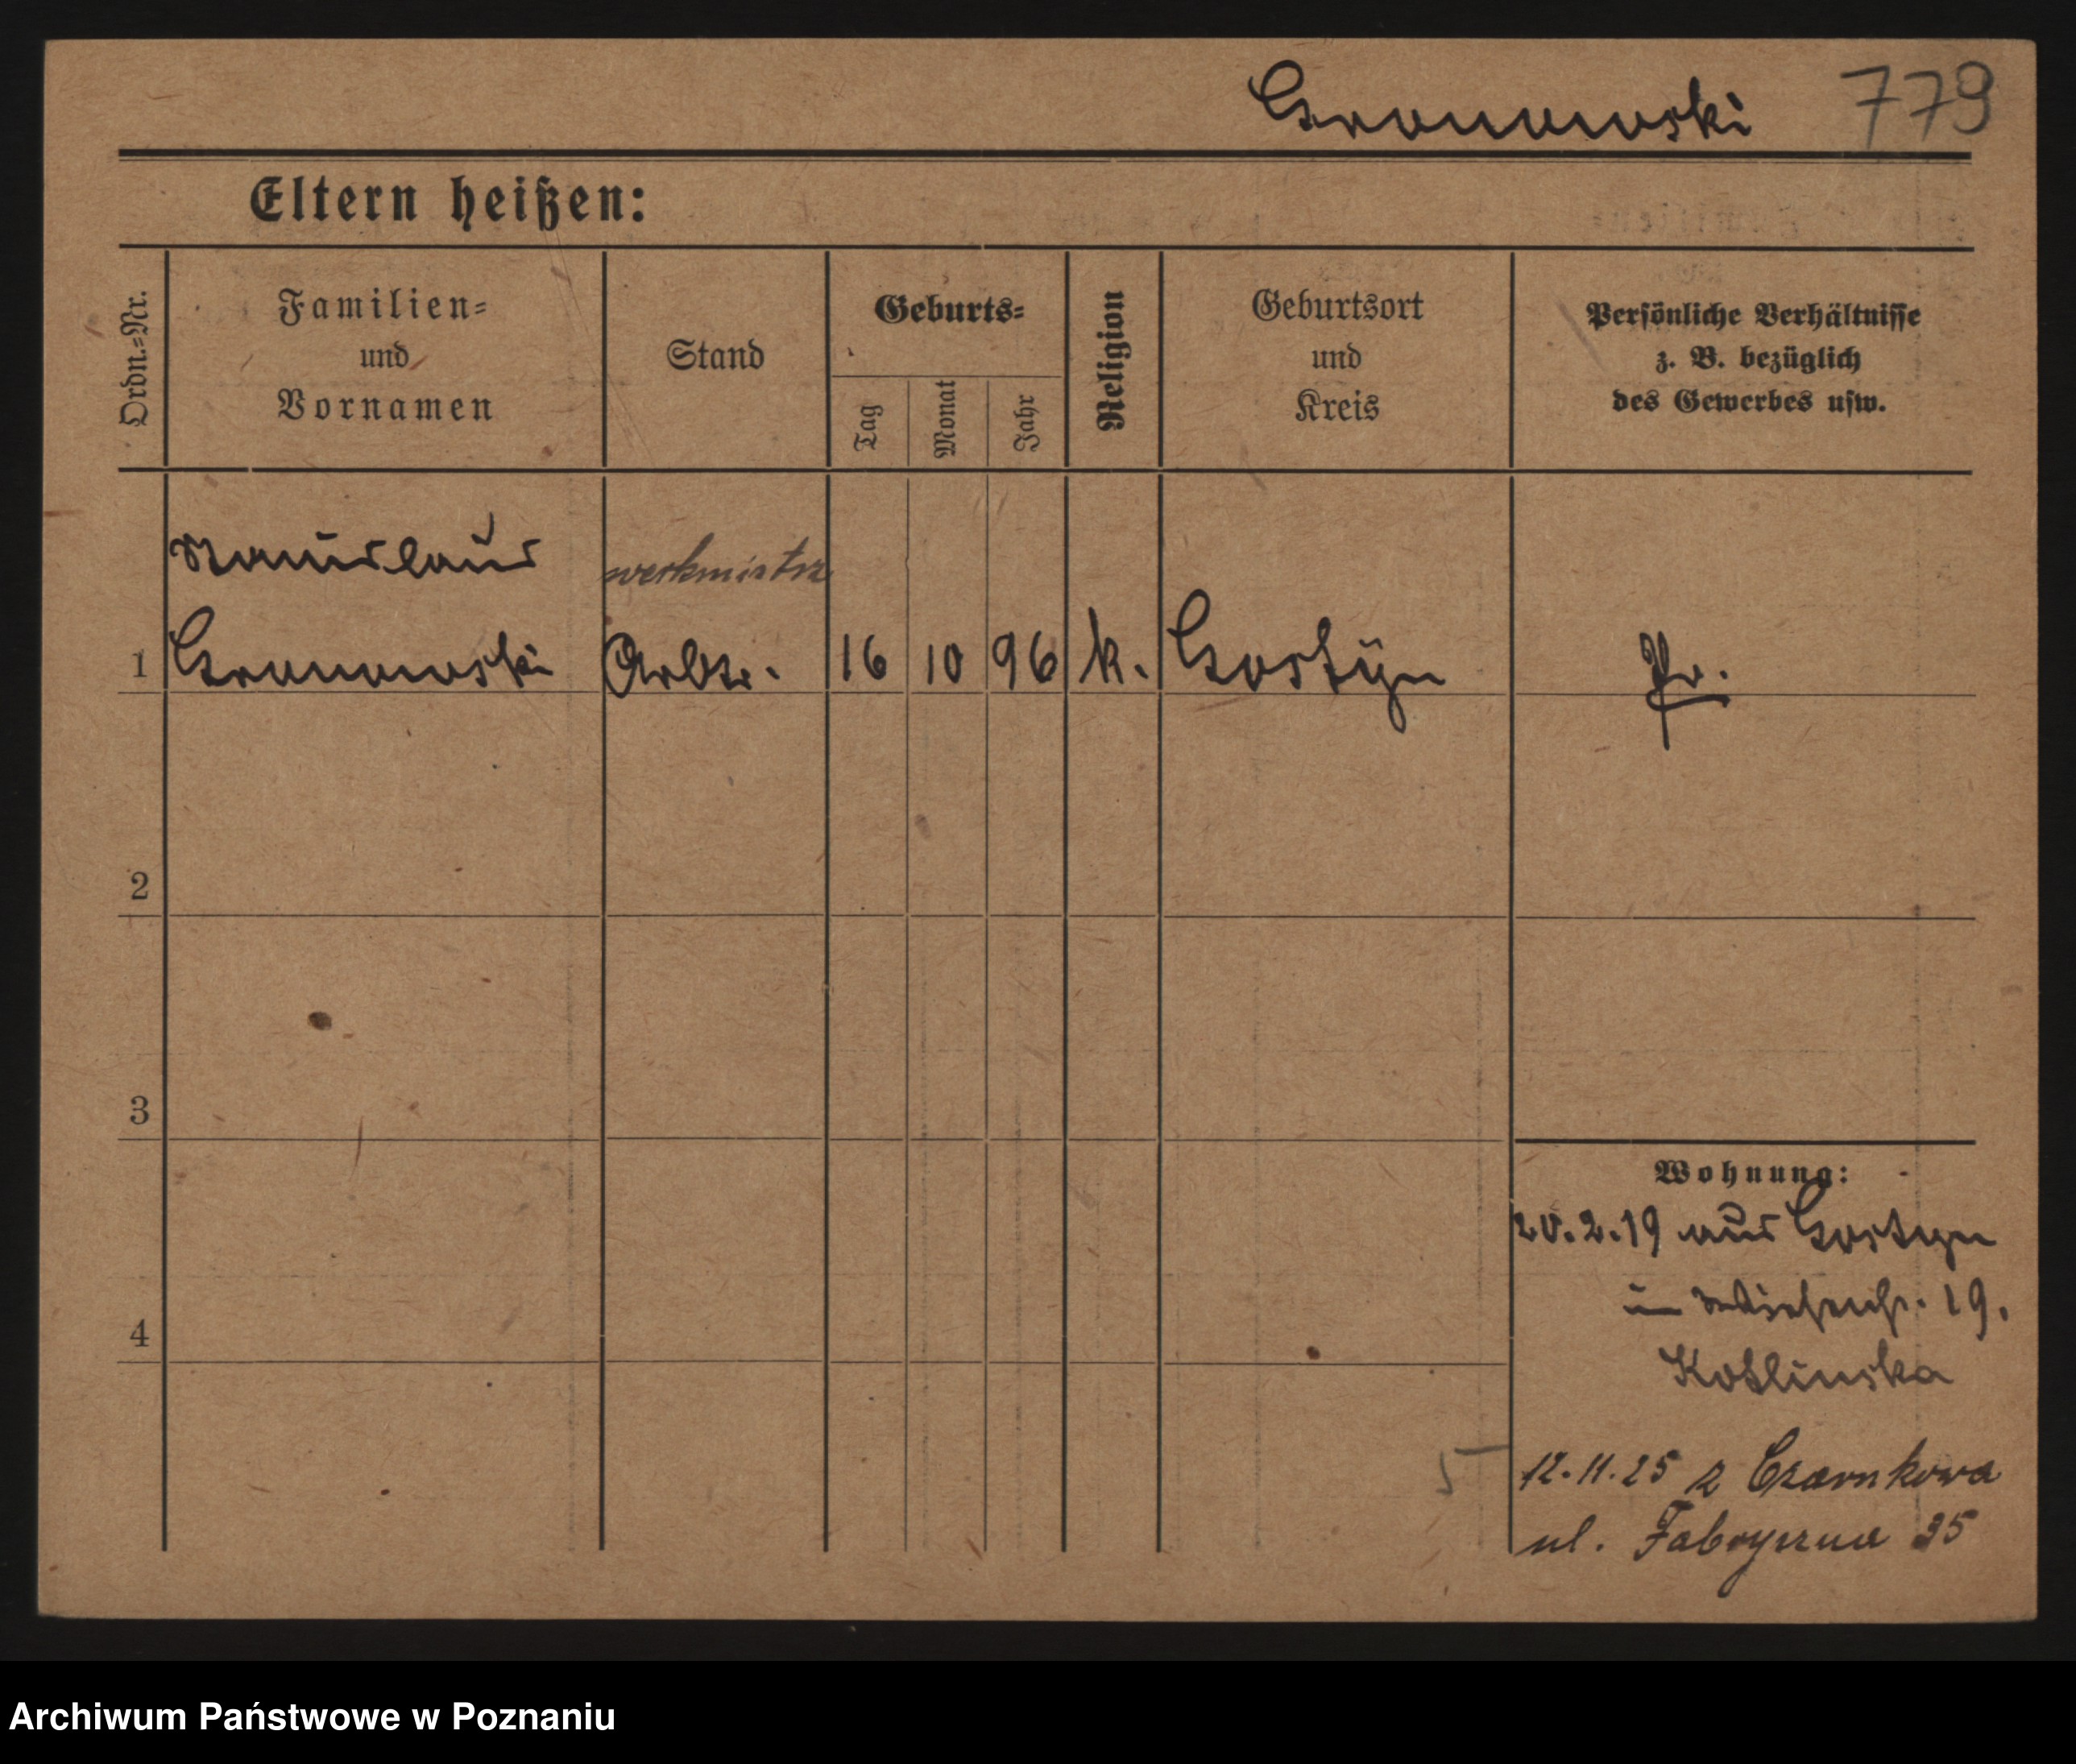 Gronowski 779
Eltern heißen:
Ordn.-Nr.
Familien-
und
Vornamen
Stand
Geburts-
Tag
Monat
Jahr
Religion
Geburtsort
und
Kreis
Persönliche Verhältnisse
z. B. bezüglich
des Gewerbes usw.
Stanislaus
werkmistrz
1 Gronowski Arbtr. 16 10 96 k. Gostÿn Pr.
2
3
4
Wohnung:
20.2.19 aus Gostyn
in 19.
12.11.25 z Czarnkowa
ul. Fabryczna 35
Archiwum Państwowe w Poznaniu